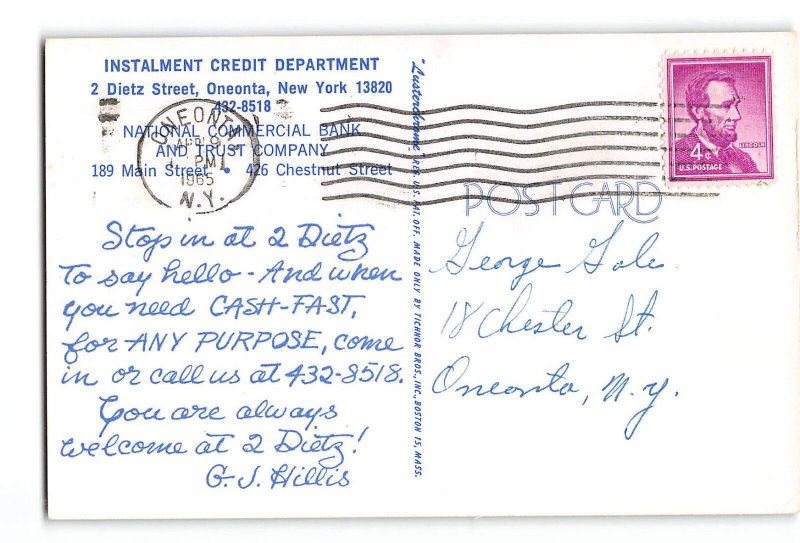 INSTALMENT CREDIT DEPARTMENT
2 Dietz Street, Oneonta, New York 13820
432-8518
NATIONAL COMMERCIAL BANK
AND TRUST COMPANY
189 Main Street • 426 Chestnut Street
ONEONTA
APR 9
PM
1965
N.Y.
Stop in at 2 Dietz
to say hello - And when
you need CASH-FAST,
for ANY PURPOSE, come
in or call us at 432-8518.
You are always
welcome at 2 Dietz!
G. J. Hillis
"Lusterchrome" REG. U.S. PAT. OFF. MADE ONLY BY TICHNOR BROS., INC., BOSTON 15, MASS.
4¢
LINCOLN
U.S. POSTAGE
POST CARD
George Gole
18 Chester St.
Oneonta, N.Y.